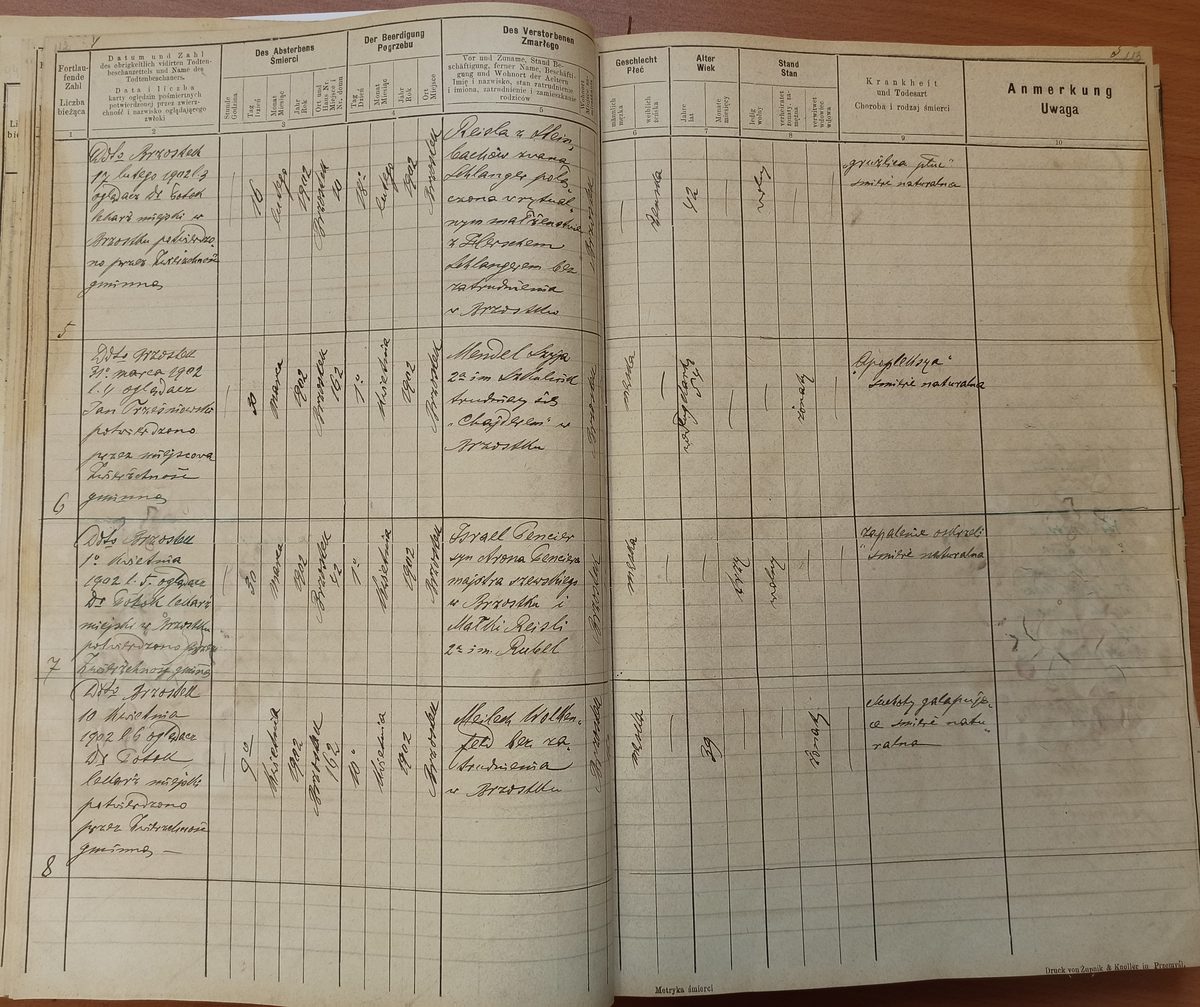 Fortlau-
fende
Zahl
Liczba
bieżąca
Datum und Zahl
des obrigkeitlich vidirten Todten-
beschauzettels und Name des
Todtenbeschauers.
Data i liczba
karty oględzin pośmiertnych
potwierdzonej przez zwierz-
chność i nazwisko oglądającego
zwłoki
Des Absterbens
Śmierci
Stunde
Godzina
Tag
Dzień
Monat
Miesiąc
Jahr
Rok
Ort und
Haus Nr.
Miejsce i
Nr. domu
Der Beerdigung
Pogrzebu
Tag
Dzień
Monat
Miesiąc
Jahr
Rok
Ort
Miejsce
Des Verstorbenen
Zmarłego
Vor und Zuname, Stand Be-
schäftigung, ferner Name, Beschäfti-
gung und Wohnort der Aeltern
Imię i nazwisko, stan zatrudnienie
i imiona, zatrudnienie i zamieszkanie
rodziców
Wohnort
Geschlecht
Płeć
männlich
męzka
weiblich
żeńska
Alter
Wiek
Jahre
lat
Monate
miesięcy
Stand
Stan
ledig
wolny
verheiratet
żonaty, za-
mężna
verwitwet
wdowiec
wdowa
Krankheit
und Todesart
Choroba i rodzaj śmierci
Anmerkung
Uwaga
1 2 3 4 5 6 7 8 9 10
5
Ddto Brzostek
17 lutego 1902 l. 3
oglądacz Dr Potok
lekarz miejski w
Brzostku potwierdzo-
no przez Zwierzchność
gminną
16
lutego
1902
Brzostek
10
18
lutego
1902
Brzostek
Reisla z
zwana
Schlanger połą-
czona w rytual-
nym małżeństwie
z Herschem
Schlangerem bez
zatrudnienia
w Brzostku
żeńska
42
wolny
"gruźlica płuc"
śmierć naturalna
6
Ddto Brzostek
31 marca 1902
l. 4 oglądacz
Jan
potwierdzono
przez miejscową
Zwierzchność
gminną
30
marca
1902
Brzostek
162
1º
kwietnia
1902
Brzostek
Mendel Szyja
2ga im.
trudniący się
"Chajderem" w
Brzostku
męska
według karty
żonaty
"Apopleksya"
śmierć naturalna
7
Ddto Brzostek
1º kwietnia
1902 l. 5. oglądacz
Dr Potok lekarz
miejski w Brzostku
potwierdzono
Zwierzchność gminną
30
marca
1902
Brzostek
42
1º
kwietnia
1902
Brzostek
Israel Pencier
syn Arona Penciera
majstra szewskiego
w Brzostku i
Małki Reisli
2ga im. Rubel
Brzostek
męska
trzy
wolny
"zapalenie oskrzeli"
śmierć naturalna
8
Ddto Brzostek
10 kwietnia
1902 l. 6 oglądacz
Dr Potok
lekarz miejski
potwierdzono
przez Zwierzchność
gminną —
9º
kwietnia
1902
Brzostek
162
10º
kwietnia
1902
Brzostek
Meilech Wolken-
feld bez za-
trudnienia
w Brzostku
Brzostek
męska
39
żonaty
suchoty galopują-
ce śmierć natu-
ralna
Metryka śmierci
Druck von Żupnik & Knoller in Przemyśl.